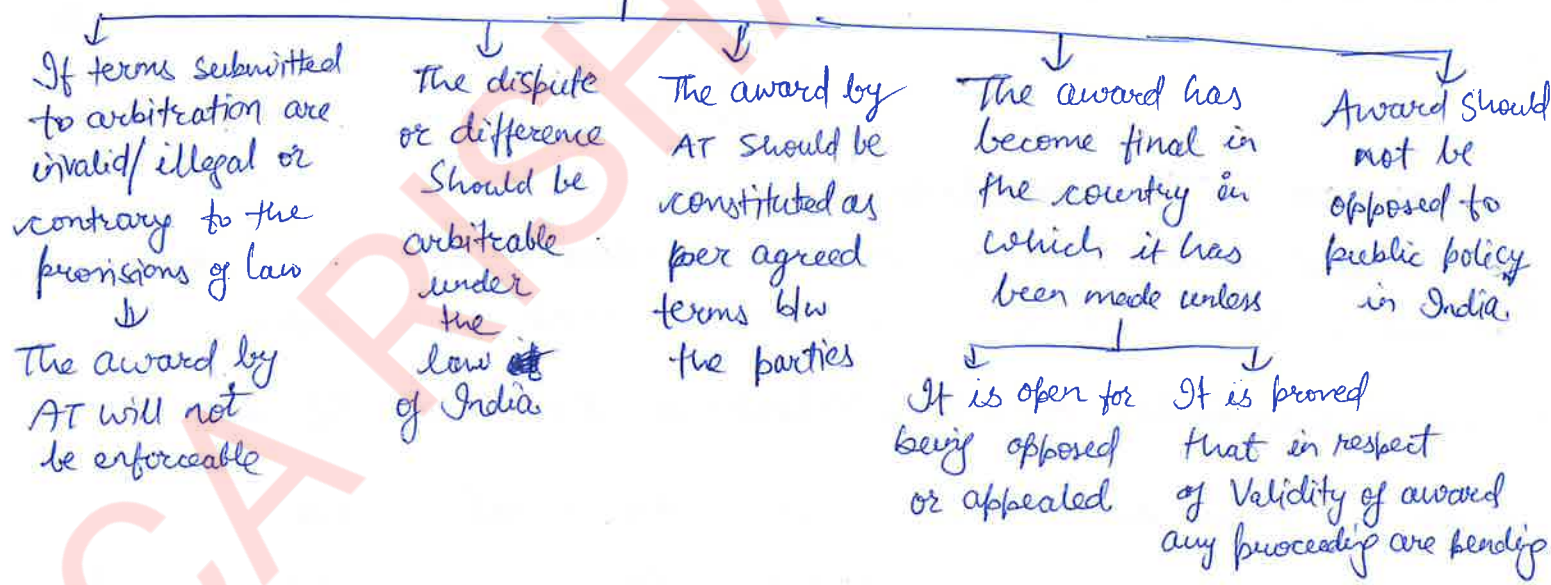 If terms submitted
to arbitration are
invalid/illegal or
contrary to the
provisions of law
The award by
AT will not
be enforceable
The dispute
or difference
Should be
arbitrable
under
the
law
of India
The award by
AT should be
constituted as
per agreed
terms b/w
the parties
The award has
become final in
the country in
which it has
been made unless
It is open for
being opposed
or appealed
It is proved
that in respect
of Validity of award
any proceeding are pending
Award should
not be
opposed to
public policy
in India
CA RISHA